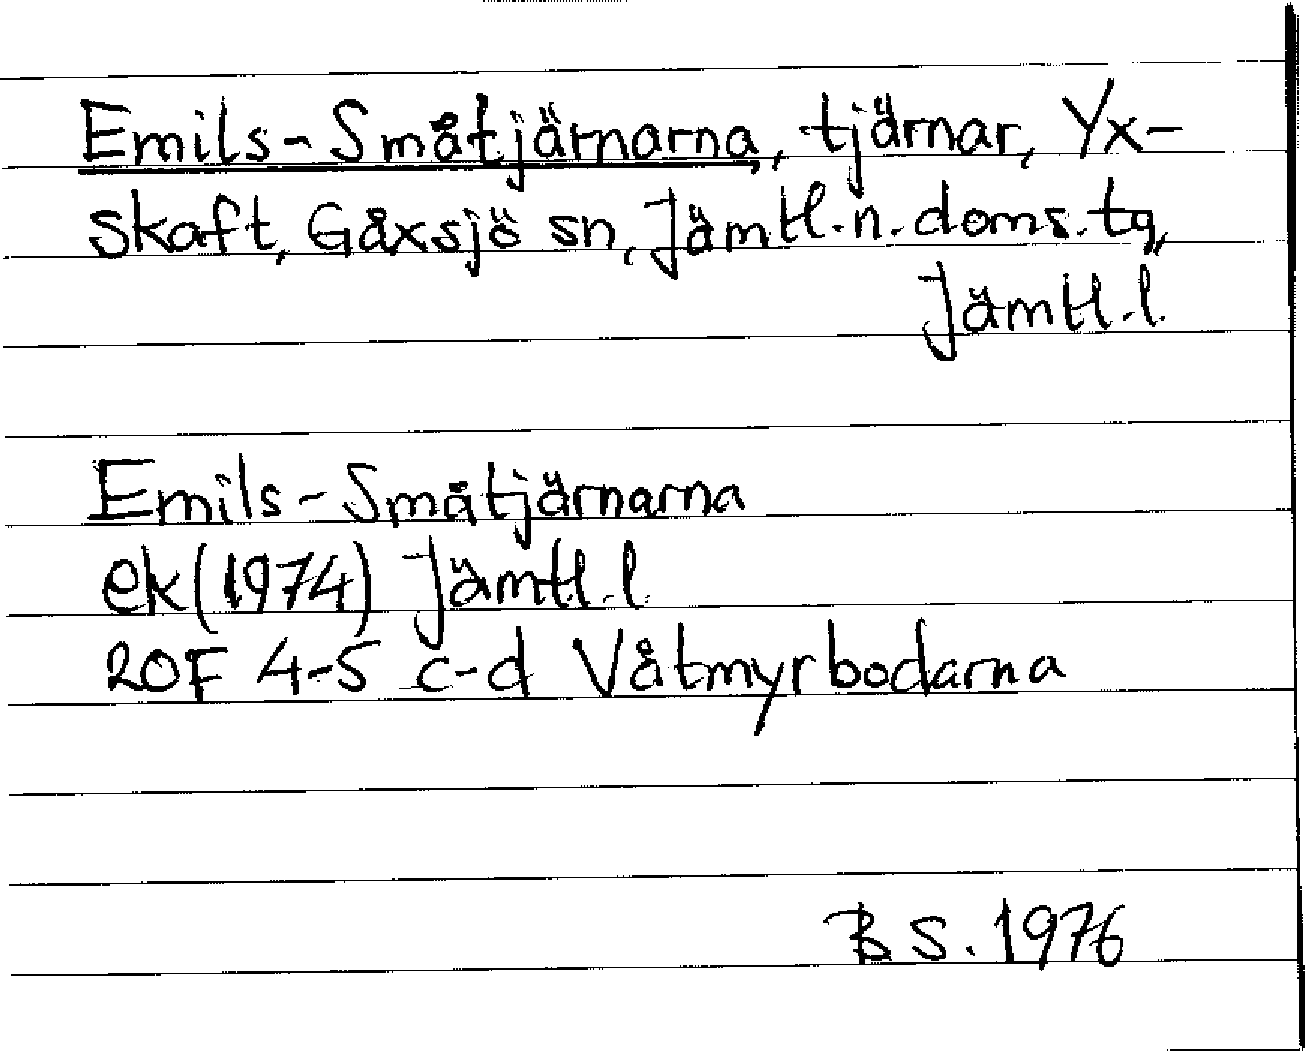 Emils-Småtjärnarna, tjärnar, Yx-
skaft, Gåxsjö sn, Jämtl.n.doms.tg,
Jämtl.l.
Emils-Småtjärnarna
ek (1974) Jämtl.l.
20F 4-5 c-d Våtmyrbodarna
BS. 1976